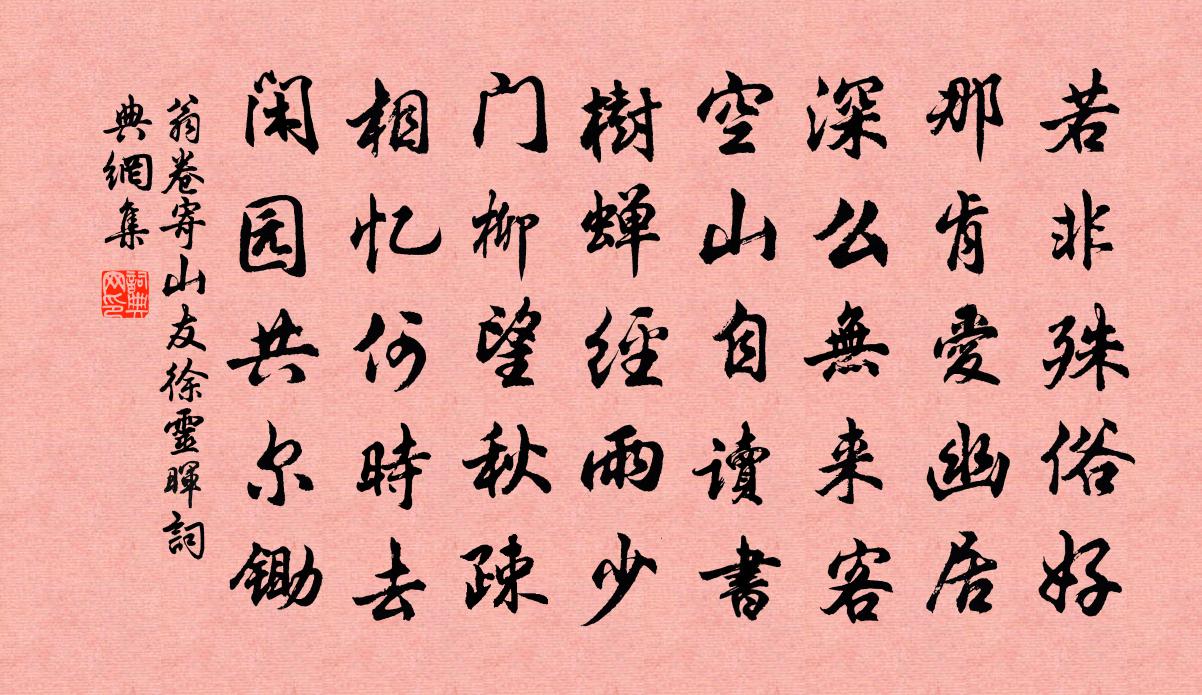 若非殊俗好
那肯爱幽居
深么無来客
空山自讀書
樹蝉經雨少
门柳望秋疎
相忆何時去
闲园共尔鋤
翁卷寄山友徐靈暉詞
典網集
詞典网印